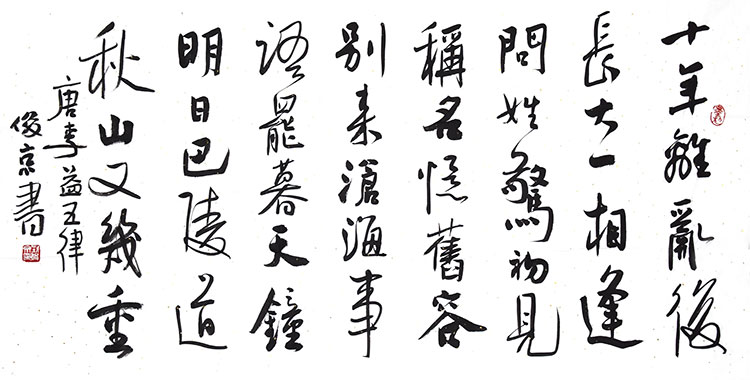 十年離亂後
長大一相逢
問姓驚初見
稱名憶舊容
別来滄海事
語罷暮天鐘
明日巴陵道
秋山又幾重
唐李益五律
俊京書